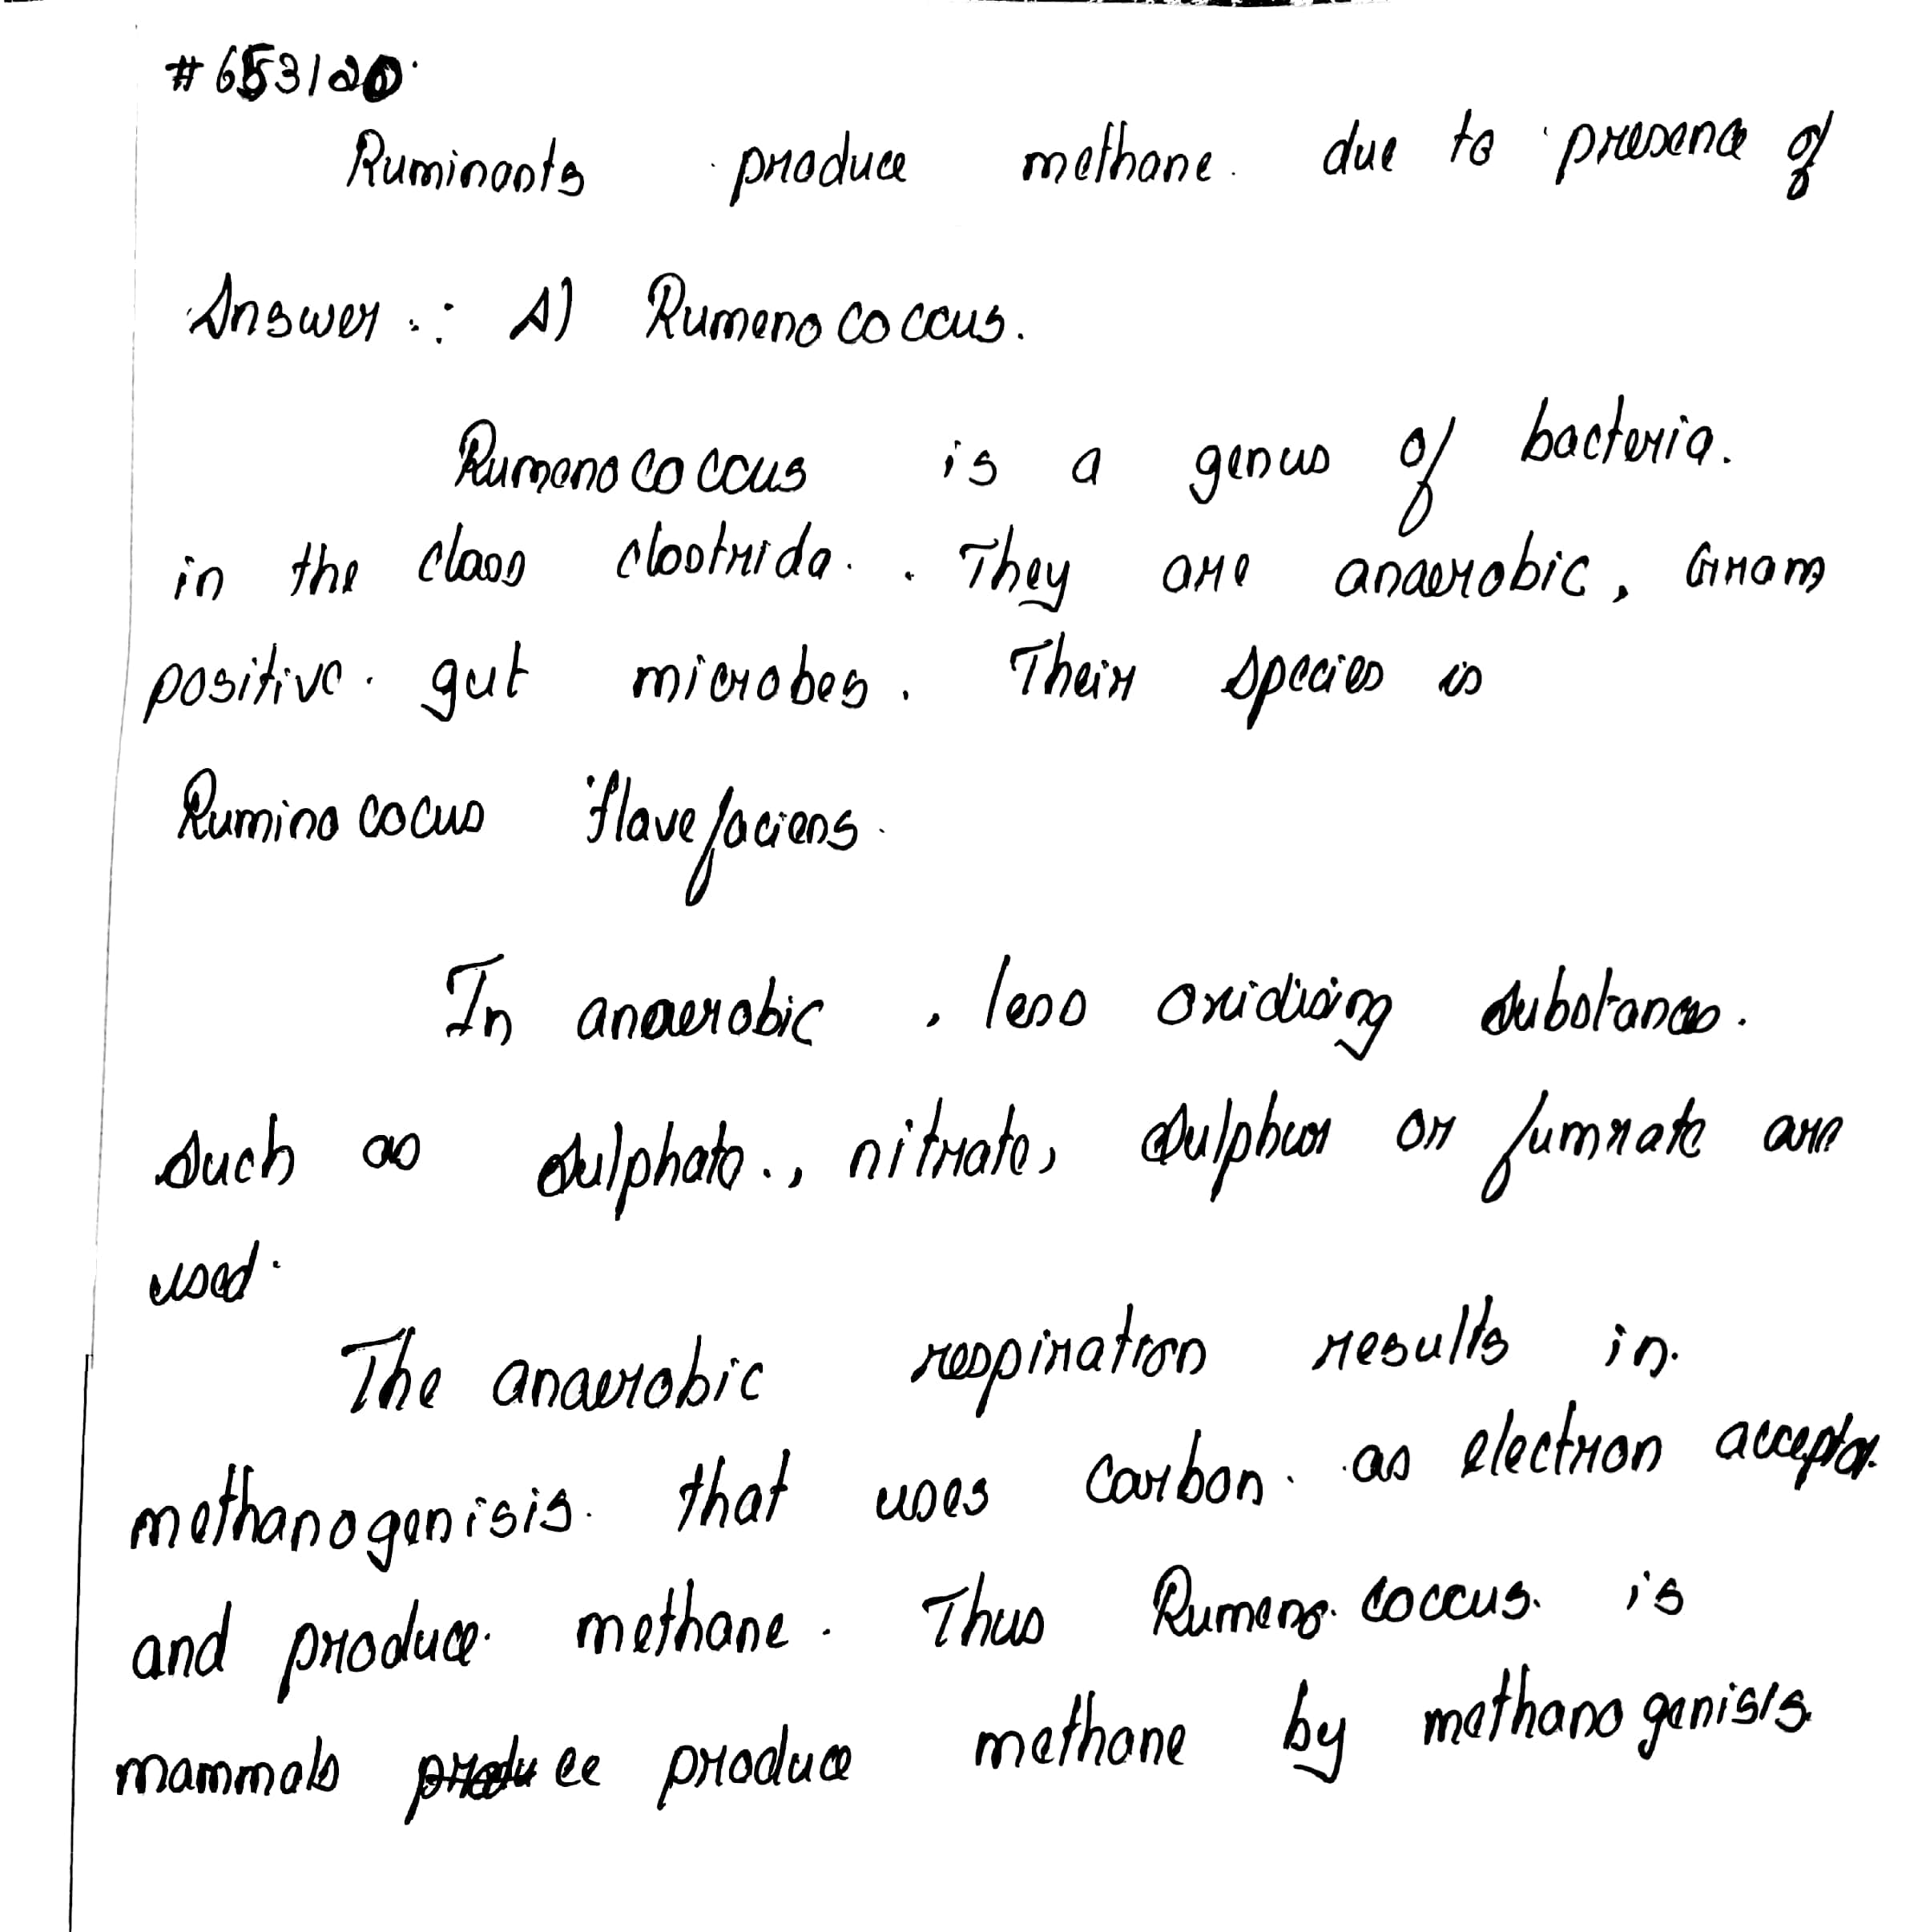 #653120.
Ruminants produce methane. due to presence of
Answer :: A) Rumenococcus.
Rumenococcus is a genus of bacteria.
in the class clostrida. . They are anaerobic, Gram
positive. gut microbes. Their species is
Ruminococus flavefaciens.
In anaerobic , less oxidising substances.
such as sulphate., nitrate, sulphur or fumrate are
used.
The anaerobic respiration results in.
methanogenisis. that uses carbon. as electron acceptor.
and produce. methane. Thus Rumeno.coccus. is
mammals produce methane by methanogenisis.